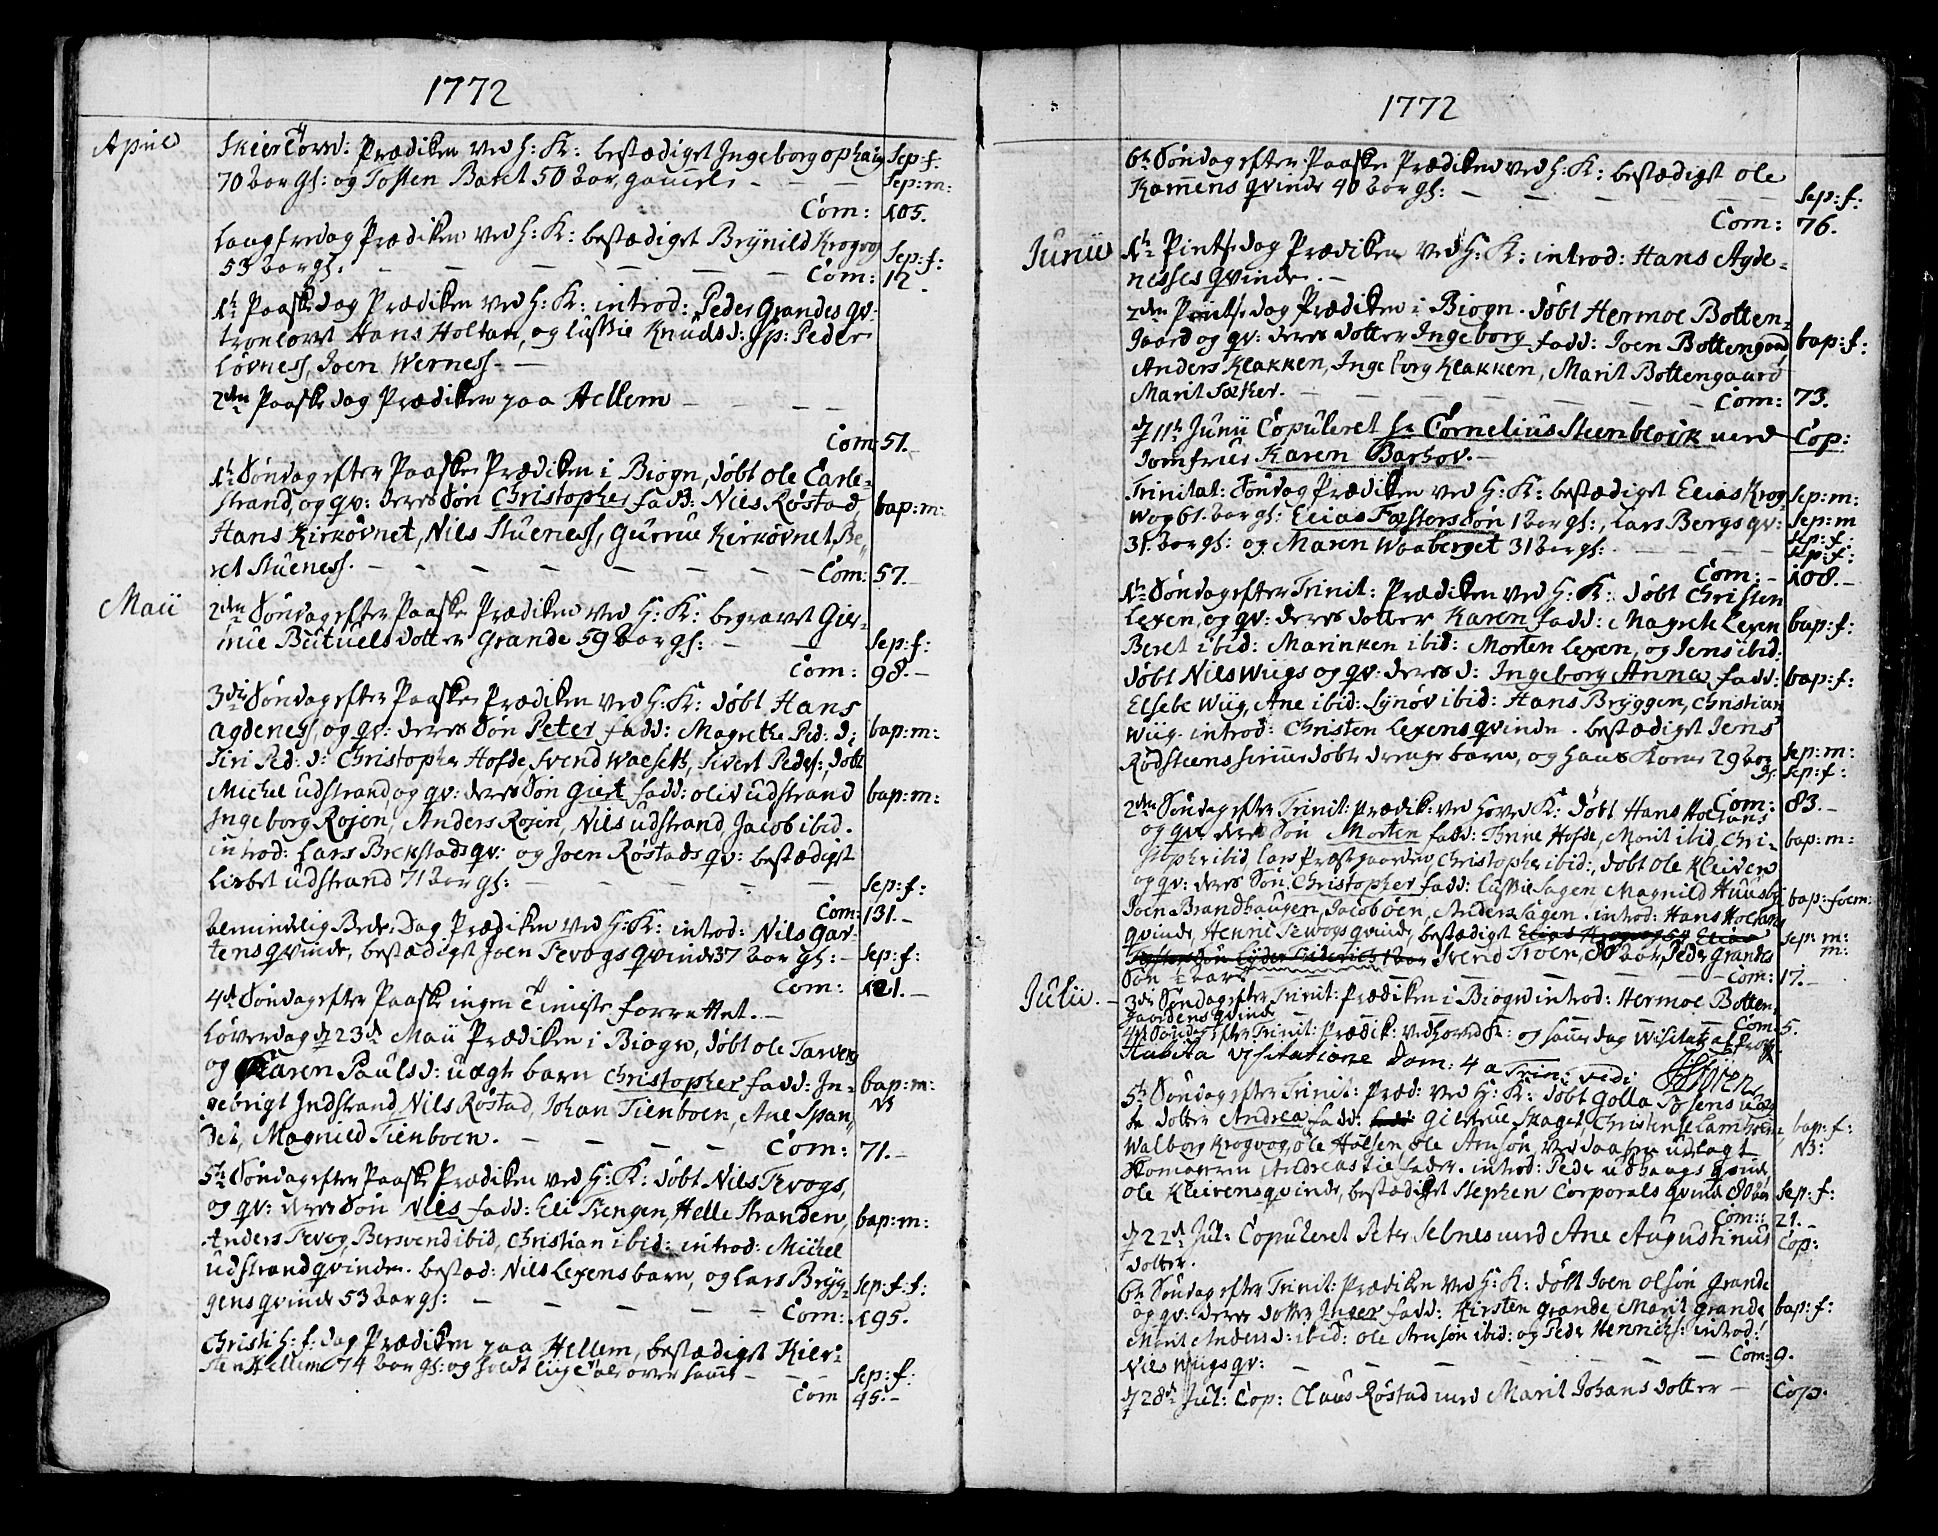 1772
April
Skiertorsd: Prædiken ved H: K: bestædiget Ingeborg Ophaug Sep: f:
70 Aar gl: og Tosten Baret 50 Aar gamel. - - - Sep: m:
Com: 105.
Langfredag Prædiken ved H: K: bestædiget Brynild Krogvog
53 Aar gl. - - - - - - Sep: f:
Com: 12.
1te Paaske dag Prædiken ved H: K: introd: Peder Grandes qv:
troelovet Hans Holtan, og Lussie Knudsd: sp: Peder
Løvness, Joen Werness. -
2den Paaske dag Prædiken paa Hellem - - - -
Com: 51. -
1te Søndag efter Paaske Prædiken i Biogn, døbt Ole Carle-
strand, og qv: deres Søn Christopher fadd: Nils Røstad, bap: m:
Hans Kirkøvnet, Nils Stueness, Gurrue Kirkøvnet, Be-
ret Stueness. - - - - - - - Com: 57. -
Maii
2den Søndag efter Paaske Prædiken ved H: K: begravet Gier-
true Butuels dotter Grande 59 Aar gl: - - Sep: f:
Com: 98. -
3die Søndag efter Paaske Prædiken ved H: K: døbt Hans
Agdeness, og qv: deres Søn Peter fadd: Magrethe Ped: d: bap: m:
Siri Ped: d: Christopher Hofde, Svend Waeseth, Sivert Peders: døbt
Michel Udstrand og qv: deres Søn Giert fadd: Oliv Udstrand bap: m:
Ingeborg Rosen, Anders Rosen, Nils Udstrand, Jacob ibid.
introd: Lars Brekstads qv: og Joen Røstads qv: bestædigt
Lisbet Udstrand 71 Aar gl: - - - - - Sep: f:
Com: 131. -
Almindelig Bede-Dag Prædiken ved H: K: introd: Nils Gar-
tens qvinde, bestædigt Joen Tevogs qvinde 37 Aar gl: - Sep: f:
Com: 121. -
4de Søndag efter Paaske ingen tieniste forrettet. -
Løverdag d 23de Maii Prædiken i Biogn, døbt Ole Tarverg
og Karen Paulsd: uægt barn Christopher fadd: In- bap: m:
gebrigt Indstrand, Nils Røstad, Johan Tienboen, Ane Span- N
det, Magnild Tienboen. - - - - - Com: 71. -
5te Søndag efter Paaske Prædiken ved H: K: døbt Nils Tevogs,
og qv: deres Søn Nils fadd: Eli Trengen, Helle Stranden, bap: m:
Anders Tevog, Bersvend ibid, Christian ibid: introd: Michel
Udstrand qvinde. bestæd: Nils Lexens barn, og Lars Bryg-
gens qvinde 53 Aar gl: - - - - - Sep: f: f:
Com: 195.
Christi H: f: dag Prædiken paa Hellem, bestædiget Kier-
sten Hellem 74 Aar gl: og holdt liig tale over same - - - Sep: f:
Com 45. -
1772
6te Søndag efter Paaske Prædiken ved H: K: bestædiget Ole
Kamens qvinde 40 Aar gl: - - - - - Sep: f:
Com: 76.
Junii
1te Pintse dag Prædiken ved H: K: introd: Hans Agde-
nesses qvinde. -
2den Pintse dag Prædiken i Biogn. døbt Hermoe Botten-
gaard og qv: deres dotter Ingeborg fadd: Joen Bottengaard, bap: f:
Anders Klakken, Ingeborg Klakken, Marit Bottengaard
Marit Sæther. - - - - - - - Com: 73.
d 11te Junii Copuleret Hr Cornelius Steenblock med Cop:
Jomfrue Karen Barhov. -
Trinitat: Søndag Prædiken ved H: K: bestædiget Elias Krog- Sep: m:
wog 61. Aar gl: Elias Fæstersøn 1 Aar gl:, Lars Bergs qv: Sep: m
31. Aar gl: og Maren Waaberget 31 Aar gl: - - - - Sep: f:
Sep: f:
Com: - 108. -
1te Søndag efter Trinit: Prædiken ved H: K: døbt Christen
Lexen, og qv: deres dotter Karen fadd: Magrete Lexen bap: f:
Beret ibid: Marinken ibid: Morten Lexen, og Jens ibid:
døbt Nils Wiigs og qv: deres d: Ingeborg Anna, fadd: bap: f:
Elsebe Wiig, Ane ibid: Synøv ibid: Hans Bryggen, Christian
Wiig. introd: Christen Lexens qvinde. bestædiget Jens
Rødsteens hiemedøbte drenge barn, og Hans Kones 29 Aar Sep: m:
gl: Sep: f:
Com: 83. -
2den Søndag efter Trinit: Prædik: ved Hoved K: døbt Hans Hoctans
og qv: deres Søn Morten fadd: Anne Hofde, Marit ibid, Chri- bap: m:
stopher ibid, Lars Præstgaarden, Christopher ibid:, døbt Ole Kleiven
og qv: deres Søn Christopher fadd: Lussie Sagen Magnild Huusby bap: foem:
Joen Brandhaugen, Jacob Øen, Anders Sagen. introd: Hans Hoctans
qvinde, Henne Tevogs qvinde, bestædiget Elias Krogvog 61 Elias Sep: m:
Svend Troen, 80 Aar, Peder Grandes m:
Søn 1/2 Aar - - - - - - - Com: 17. -
Julii. -
3die Søndag efter Trinit: Prædiken i Biogn introd: Hermoe Botten-
gaardens qvinde - - - - - Com: 5.
4de Søndag efter Trinit: Prædik: ved Hoved K: og same dag Visitatz af Provst
Habita visitatione Dom: 4 a Trin: vidi
5te Søndag efter Trinit: Præd: ved H: K: døbt Golla Tosens uæg-
te dotter Andrea fadd: Giertrue Skaget, Christense Lamhrene, bap: f:
Walborg Krogvog, Ole Holsen, Ole Arnsøn, ved daaben udlagt N:
Skomageren Andreas til fader. introd: Peder Udhaugs qvinde,
Ole Kleivens qvinde, bestædiget Stephen Corporals qvinde 80 Aar Sep: f:
Com: 21. -
d 22de Jul: Copuleret Peter Selnes med Ane Augustinus Cop:
dotter.
6te Søndag efter Trinit: Prædiken ved H: K: døbt Joen Olsøn Grande
og qv: deres dotter Inger fadd: Kirsten Grande, Marit Grande bap: f:
Marit Andersd: ibid: Ole Arnsøn ibid: og Peder Henrichs: introd:
Nils Wiigs qv: - - - - - - - Com: 9.
d 28de Jul: Cop: Claus Røstad med Marit Johans dotter - Cop.